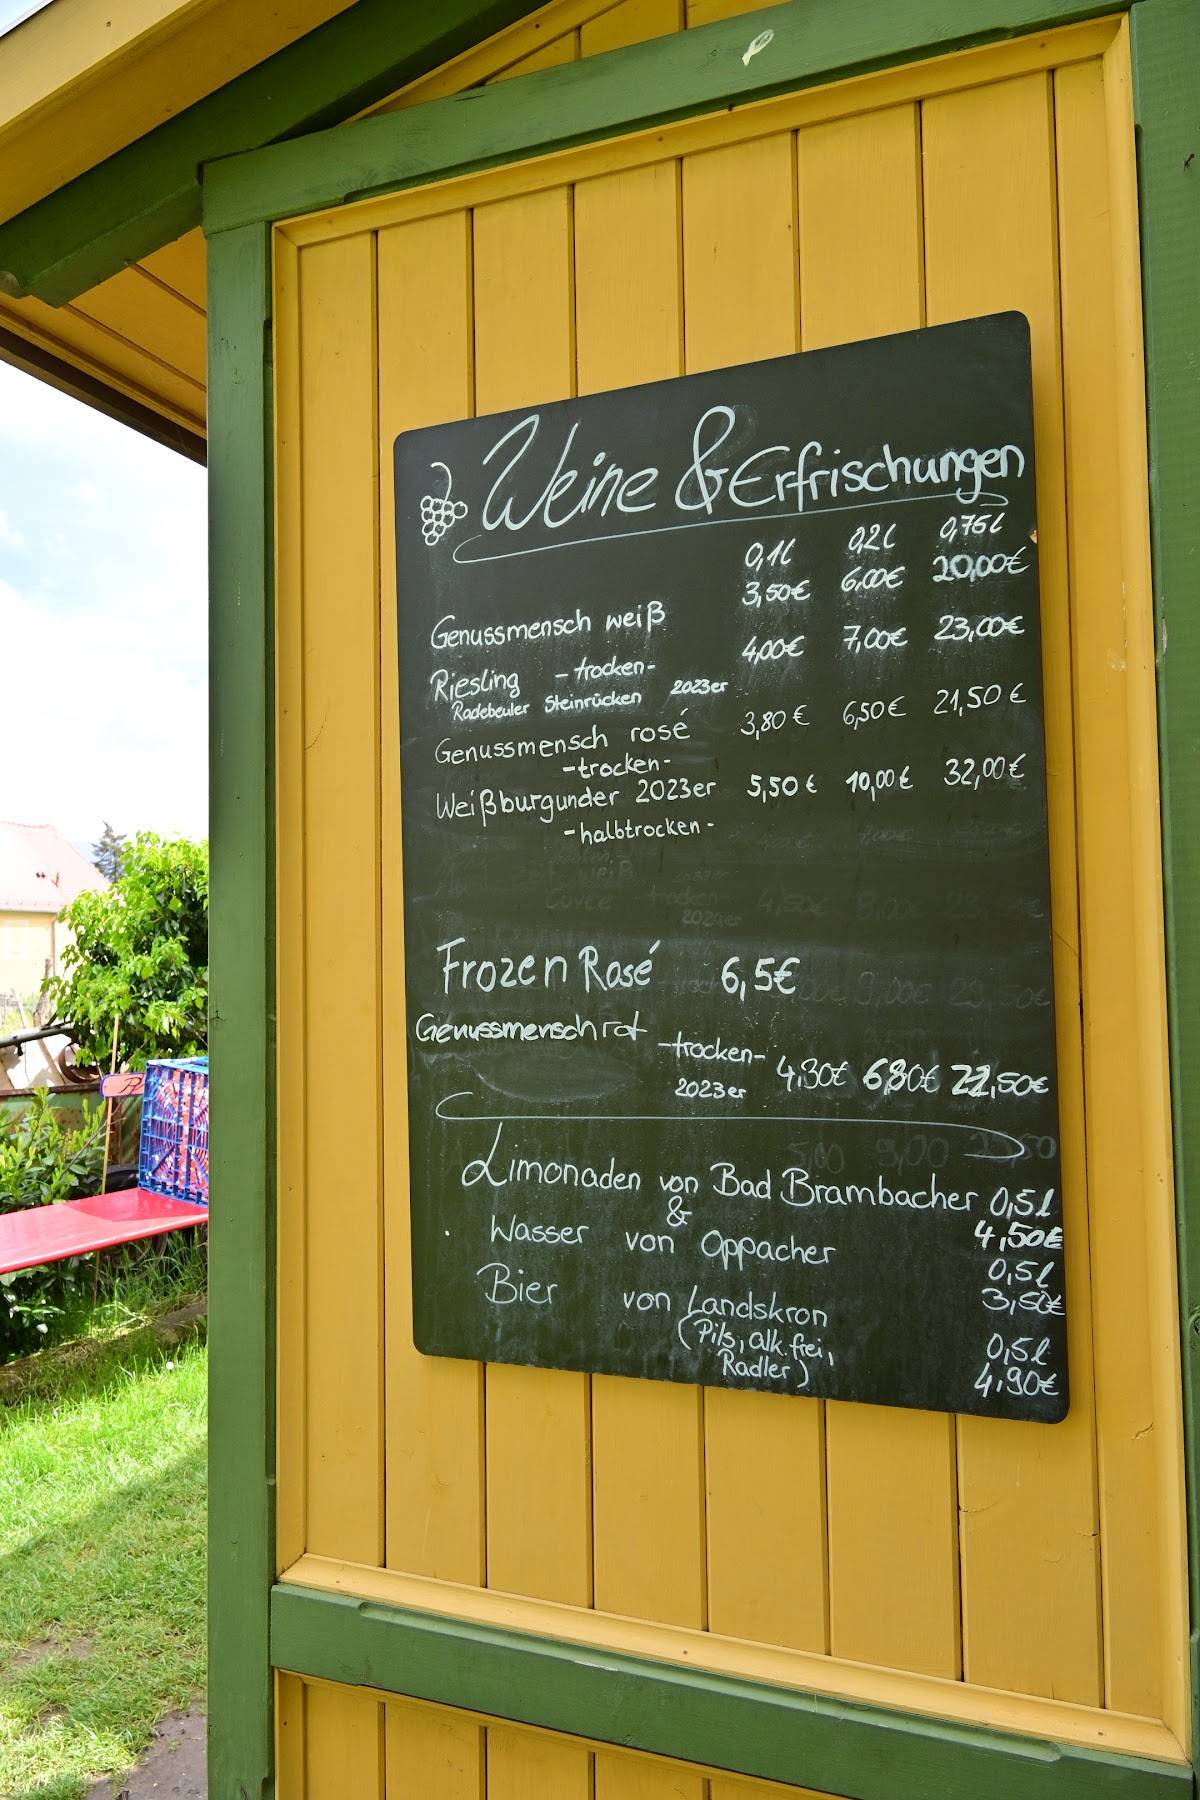 Weine & Erfrischungen
0,1l 0,2l 0,75l
Genussmensch weiß 3,50€ 6,00€ 20,00€
Riesling - trocken - 4,00€ 7,00€ 23,00€
Radebeuler Steinrücken 2023er
Genussmensch rosé 3,80€ 6,50€ 21,50€
- trocken -
Weißburgunder 2023er 5,50€ 10,00€ 32,00€
- halbtrocken -
Frozen Rosé 6,5€
Genussmensch rot - trocken - 4,30€ 6,80€ 22,50€
2023er
Limonaden von Bad Brambacher 0,5l
& 4,50€
Wasser von Oppacher 0,5l
3,50€
Bier von Landskron 0,5l
(Pils, alk.frei, 4,90€
Radler)